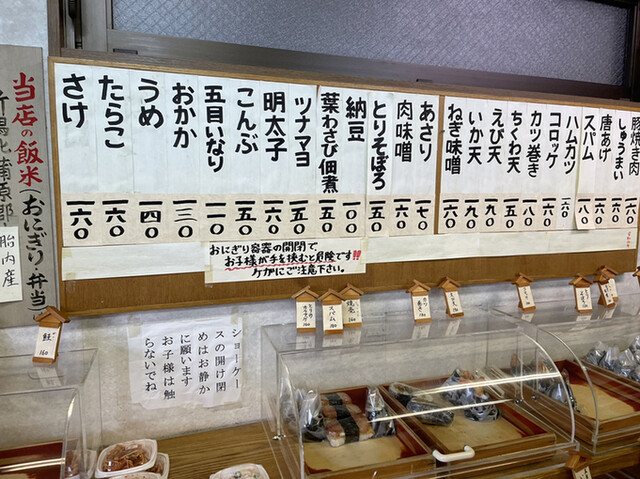 豚焼き肉 一八〇
しゅうまい 一六〇
唐あげ 一六〇
スパム 一八〇
ハムカツ 一六〇
コロッケ 一六〇
カツ巻き 一八〇
ちくわ天 一五〇
えび天 一九〇
いか天 一九〇
ねぎ味噌 一六〇
あさり 一七〇
肉味噌 一六〇
とりそぼろ 一五〇
納豆 一〇〇
葉わさび佃煮 一五〇
ツナマヨ 一五〇
明太子 一六〇
こんぶ 一五〇
五目いなり 一一〇
おかか 一三〇
うめ 一四〇
たらこ 一六〇
さけ 一六〇
当店の飯米(おにぎり・弁当
新潟北蒲原郡
胎内産
おにぎり容器の開閉で、
お子様が手を挟むと危険です!!
ケガにご注意下さい。
ショーケー
スの開け閉
めはお静か
に願います
お子様は触
らないでね
鮭 160
スパム